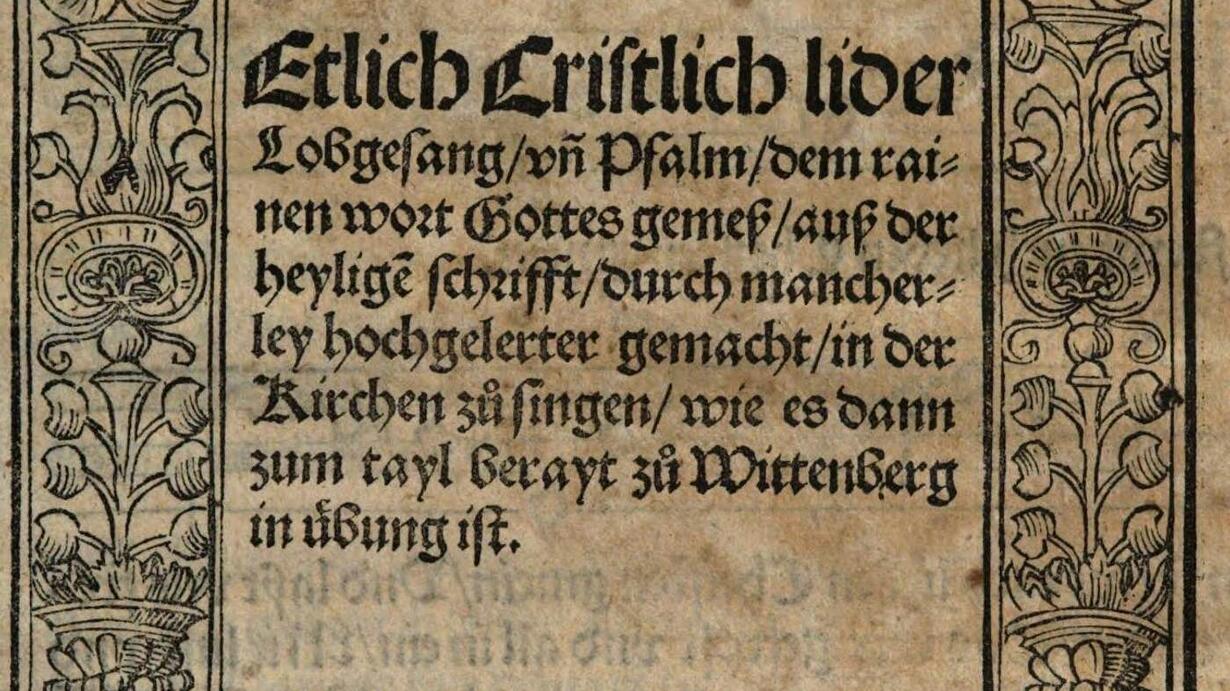 Etlich Cristlich lider
Lobgesang/vñ Psalm/dem rai⸗
nen wort Gottes gemeß/auß der
heyligẽ schrifft/durch mancher⸗
ley hochgelerter gemacht/in der
Kirchen zůsingen/wie es dann
zum tayl berayt zů Wittenberg
in uͤbung ist.